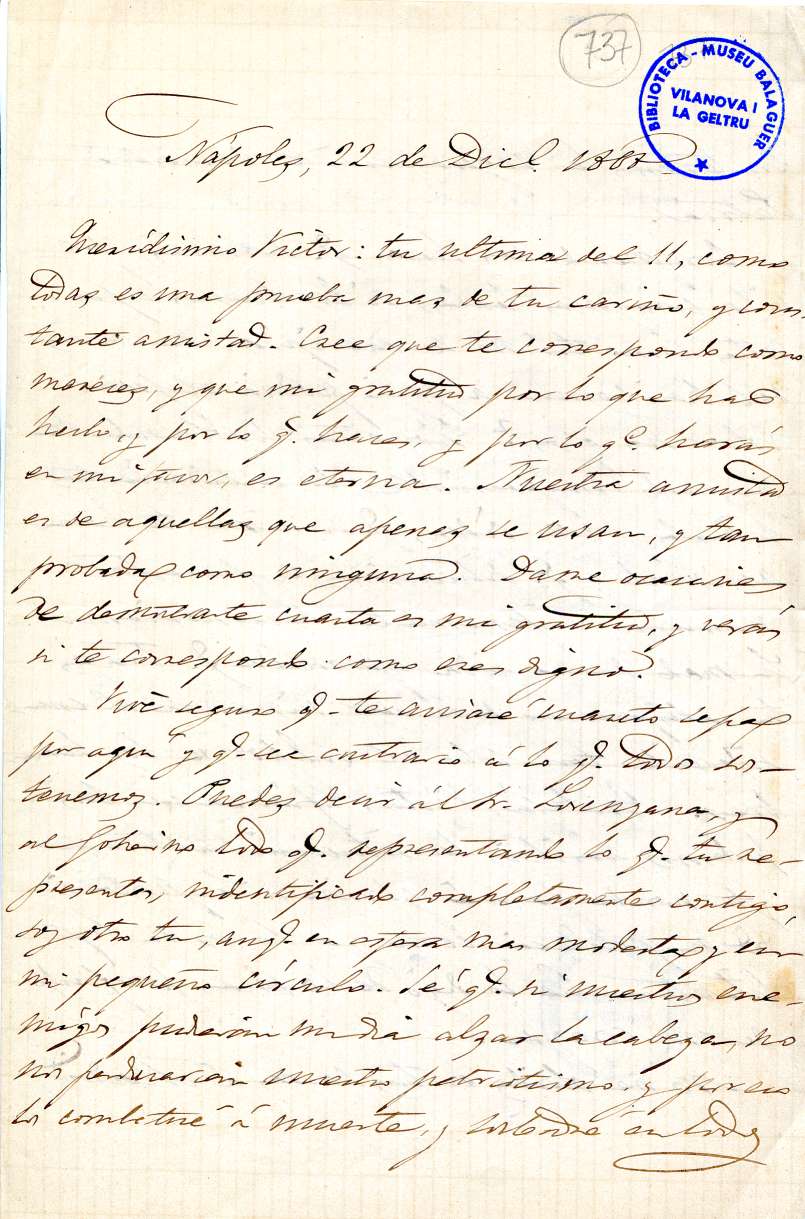 737
BIBLIOTECA - MUSEU BALAGUER
VILANOVA I
LA GELTRU
Nápoles, 22 de Dice. 1868
Queridisimo Victor: tu ultima del 11, como
todas es una prueba mas de tu cariño, y cons-
tante amistad. Cree que te correspondo como
mereces, y que mi gratitud por lo que has
hecho, y por lo q. haces, y por lo qe. harás
en mi favor, es eterna. Nuestra amistad
es de aquellas que apenas se usan, y tan
probada como ninguna. Dame ocasiones
de demostrarte cuanta es mi gratitud, y verás
si te correspondo como eres digno.
Vive seguro q. te avisaré cuanto sepa
por aqui y q. sea contrario á lo q. todos sos-
tenemos. Puedes decir al Sr. Lorenzana, y
al Gobierno todo q. representando lo q. tu re-
presentas, indentificado completamente contigo,
soy otro tu, aunq. en esfera mas modesta y en
mi pequeño círculo. Sé q. si nuestros ene-
migos pudieran un dia alzar la cabeza, no
nos perdonarian nuestro patriotismo, y por eso
los combatiré á muerte, y sostendré en todos